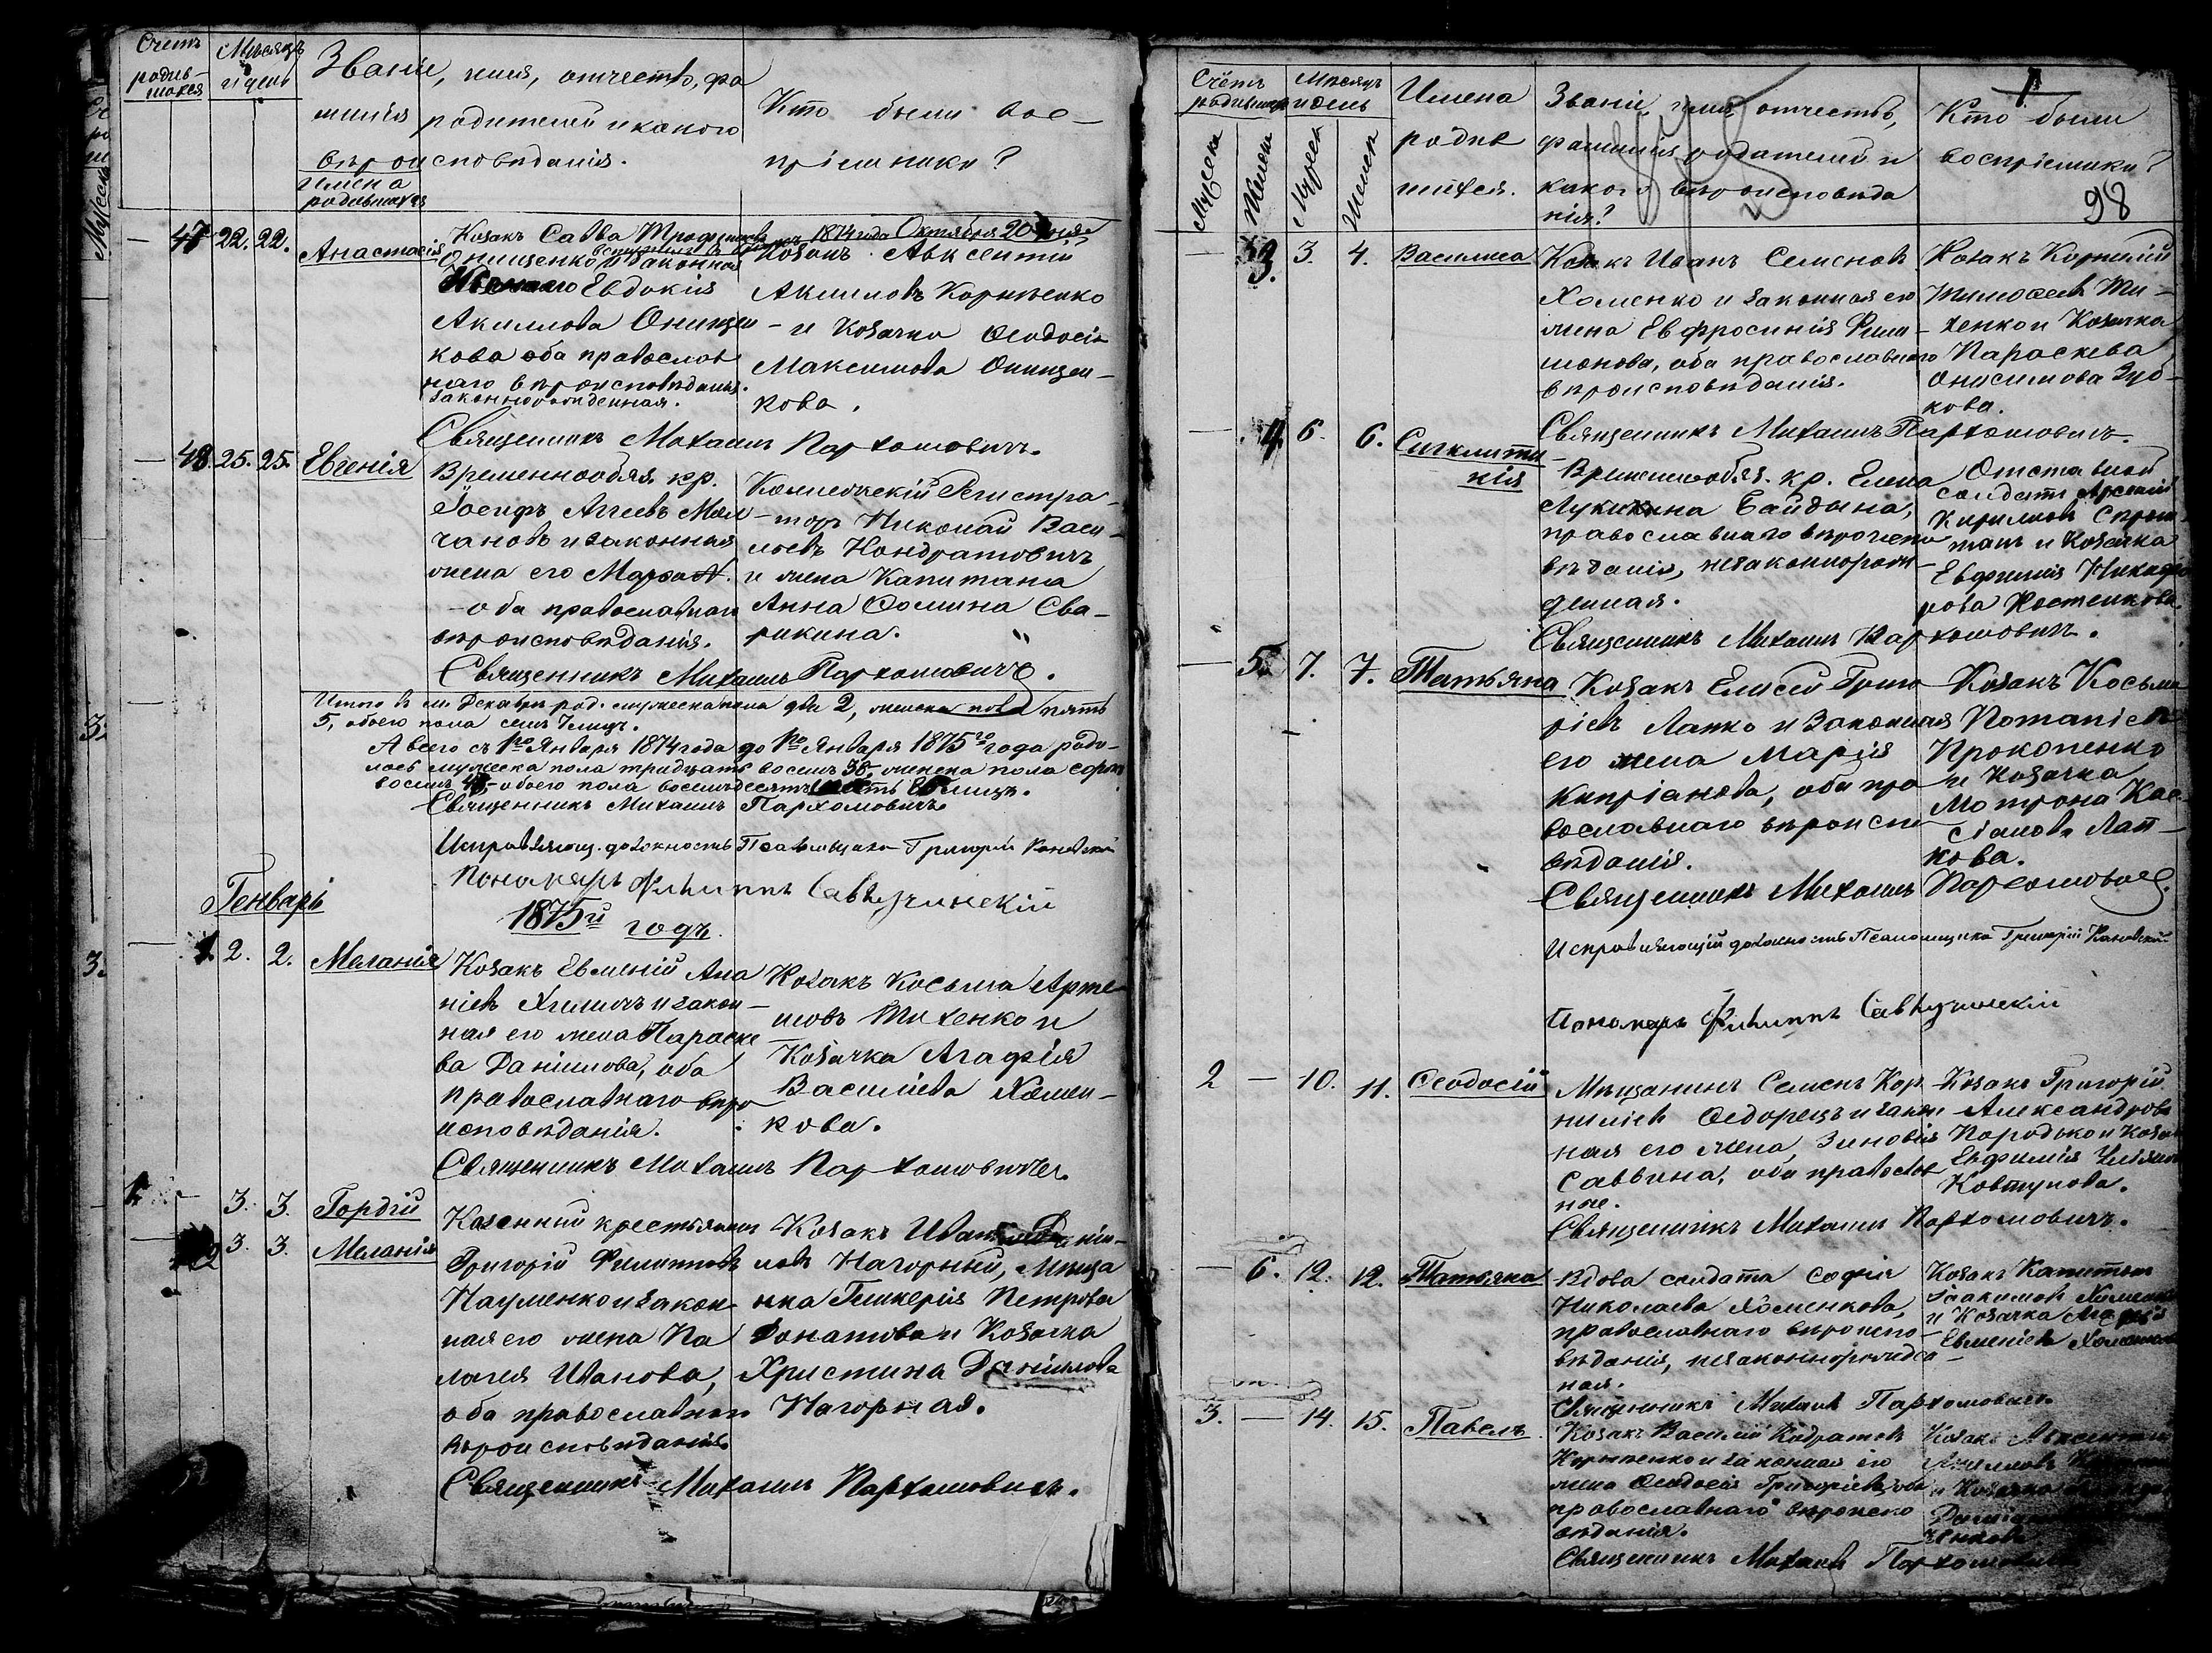 Счетъ родив-шихся
Мѣсяцъ и день
Званіе, имя, отчество, фа
милія родителей и какого
вѣроисповѣданія.
Имена родившихся
Кто были вос-
пріемники?
47 22. 22. Анастасія
Козакъ Савва Трофимовъ
1874 года Октября 20 дня
Онищенко и законная
Евдокия
Акилова Онищен
кова оба православ
наго вѣроисповѣданія.
законнорожденная.
Козакъ Авксентій
Акиловъ Корнѣенко
и Козачка Ѳеодосія
Максимова Онищен-
кова.
Священникъ Михаилъ Пархомовичъ.
48. 25. 25. Евгенія
Временнообяз. кр.
Іосифъ Агеевъ Мол
чановъ и законная
жена его Марфа А.
оба православнаго
вѣроисповѣданія.
Коллежскій Регистра-
торъ Николай Васи-
льевъ Кондратовичъ
и жена Капитана
Анна Ѳомина Сва-
рикина.
Священникъ Михаилъ Пархомовичъ.
Итого въ м. Декабрѣ род. мужеска пола два 2, женска пола пять
5, обоего пола семь 7 лицъ.
А всего съ 1го Января 1874 года до 1го Января 1875го года роди-
лось мужеска пола тридцать восемь 38, женска пола сорокъ
восемь 48, обоего пола восемьдесятъ шесть 86 лицъ.
Священникъ Михаилъ Пархомовичъ
Исправляющ. должность Псаломщика Григорій
Пономарь Филиппъ Савлучинскій
Генварь
1875й годъ.
1. 2. 2. Меланія
Козакъ Евменій Ана
ніевъ Хилимъ и закон-
ная его жена Параске
ва Даніилова, оба
православнаго вѣро
исповѣданія.
Козакъ Косьма Арте
мовъ Тихенко и
Козачка Агафія
Василіева Хомен-
кова.
Священникъ Михаилъ Пархомовичъ.
1. — 3. 3. Гордій
— 2 3. 3. Меланія
Казенный крестьянинъ
Григорій Филипповъ
Науменко и закон-
ная его жена Пе
лагея Иванова,
оба православнаго
вѣроисповѣданія.
Козакъ Иванъ Даніи-
ловъ Нагорный, Мѣща
нка Гликерія Петрова
Донатова и Козачка
Христина Даніилова
Нагорная.
Священникъ Михаилъ Пархомовичъ.
Счётъ родившихся
Мѣсяцъ и день
Мужеск Женск Мужеск Женск
Имена
родив
шихся.
Званіе, имя, отчество,
фамилія родителей и
какого вѣроисповѣда
нія?
Кто были
воспріемники?
98
— 3. 3. 4. Василиса
Козакъ Иванъ Семеновъ
Хоменко и законная его
жена Евфросинія Фили
монова, оба православнаго
вѣроисповѣданія.
Козакъ Корнилій
Тимоѳеевъ Ти-
хенко и Козачка
Параскева
Онисимова Зуб-
кова.
Священникъ Михаилъ Пархомовичъ.
— 4. 6. 6. Сигклити-
кія
Временнообяз. кр. Елена
Лукина Байдына,
православнаго вѣроиспо
вѣданія, незаконнорож-
денная.
Отставной
солдатъ Арсеній
Кириловъ
и Козачка
Евфимія Никифо
рова Костенкова.
Священникъ Михаилъ Пархомовичъ.
— 5. 7. 7. Татьяна
Козакъ Елисей Григо
ріевъ Лапко и Законная
его жена Марія
Кипріанова, оба пра
вославнаго вѣроиспо
вѣданія.
Козакъ Косьма
Потапіевъ
Прокопенко
и Козачка
Мотрона Кас-
сіанова Лап-
кова.
Священникъ Михаилъ Пархомовичъ
Исправляющій должность Псаломщика Григорій
Пономарь Филиппъ Савлучинскій
2 — 10. 11. Ѳеодосій
Мѣщанинъ Семенъ Кор
ниліевъ Ѳедорецъ и закон
ная его жена, Зиновія
Саввина, оба православ
ные.
Козакъ Григорій
Александровъ
Породько и Козач
Евфимія
Ковтунова.
Священникъ Михаилъ Пархомовичъ.
— 6. 12. 12. Татьяна
Вдова солдата Софія
Николаева Хоменкова,
православнаго вѣроиспо-
вѣданія, незаконнорожден-
ная.
Козакъ Капитонъ
Іоакимовъ
и Козачка Агафія
Евменіева
Священникъ Михаилъ Пархомовичъ.
3. — 14. 15. Павелъ
Козакъ Василій Кодратовъ
Корнѣенко и законная его
жена Ѳеодосія Григоріева, оба
православнаго вѣроиспо
вѣданія.
Козакъ
и Козачка
Священникъ Михаилъ Пархомовичъ